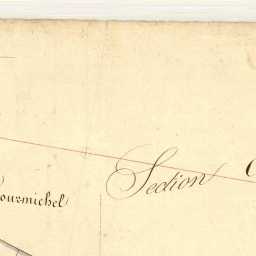 Section
ourmichel